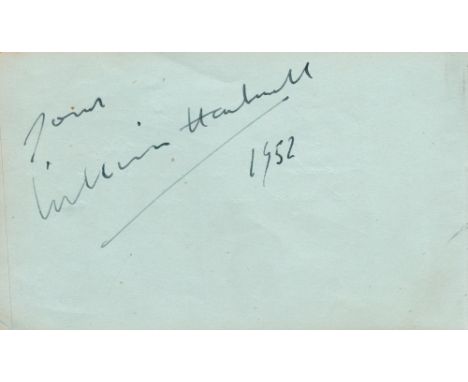 Yours
William Hartnell
1952